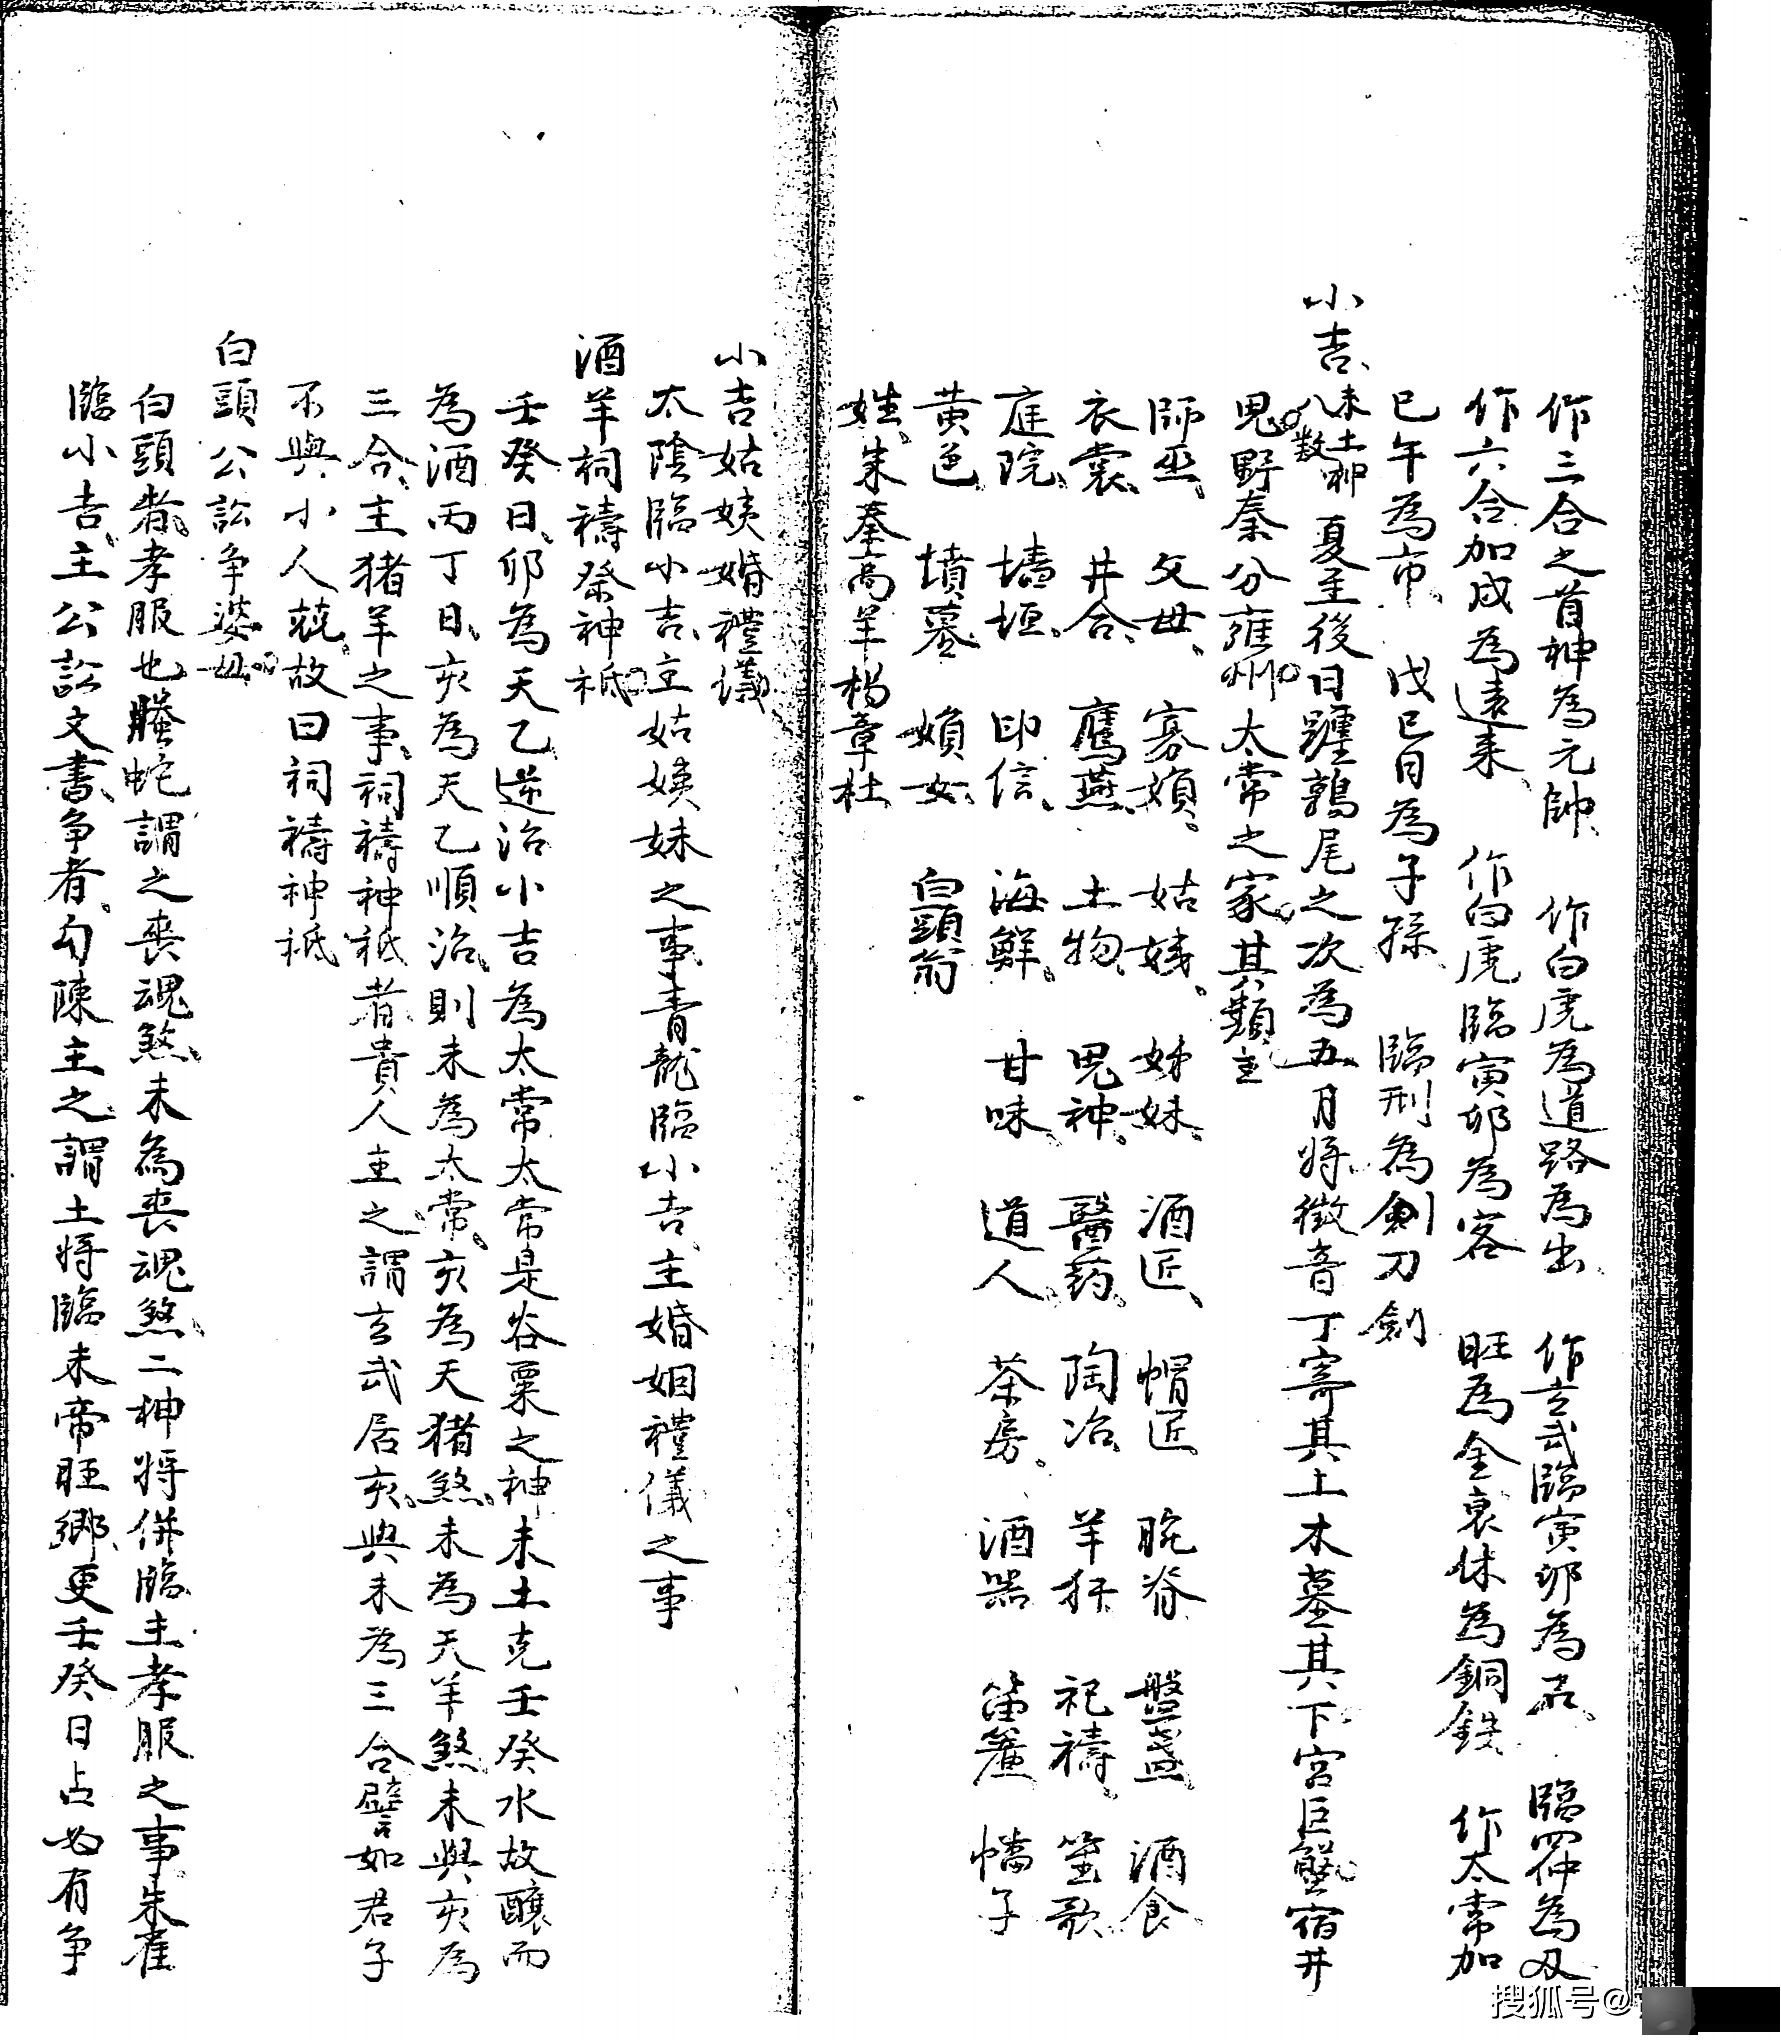 作三合之首神為元帥 作白虎為道路為出 作玄武臨寅卯為 臨四仲為刄
作六合加戌為遠來 作白虎臨寅卯為客 旺為金衰休為銅鉄 作太常加
巳午為市 戊己日為子孫 臨刑為劍刀劍
小吉 未土神八數 夏至後日躔鶉尾之次為五月將徵音丁寄其土木墓其下宮巨蟹宿井
鬼野秦分雍州 太常之家其類主
師巫 父母 寡婦 姑姨 姊妹 酒匠 帽匠 盤盞 酒食
衣裳 井合 鷹燕 土物 鬼神 醫药 陶冶 羊 祀禱 笙歌
庭院 墻垣 印信 海鮮 甘味 道人 茶房 酒器 簾 幡子
黄色 墳墓 女 白頭翁
姓 朱秦高羊楊章杜
小吉姑姨婚禮儀
太陰臨小吉主姑姨妹之事青龍臨小吉主婚姻禮儀之事
酒羊祠禱祭神祗
壬癸日卯為天乙逆治小吉為太常太常是谷粟之神未土克壬癸水故釀而
為酒丙丁日亥為天乙順治則未為太常亥為天猪煞未為天羊煞未與亥為
三合主猪羊之事祠禱神祗者貴人主之謂玄武居亥與未為三合譬如君子
不與小人兢故曰祠禱神祗
白頭公訟争婆
白頭者孝服也騰蛇謂之喪魂煞未為喪魂煞二神將併臨主孝服之事朱雀
臨小吉主公訟文書争者勾陳主之謂土將臨未帝旺鄉更壬癸日占必有争
搜狐号@